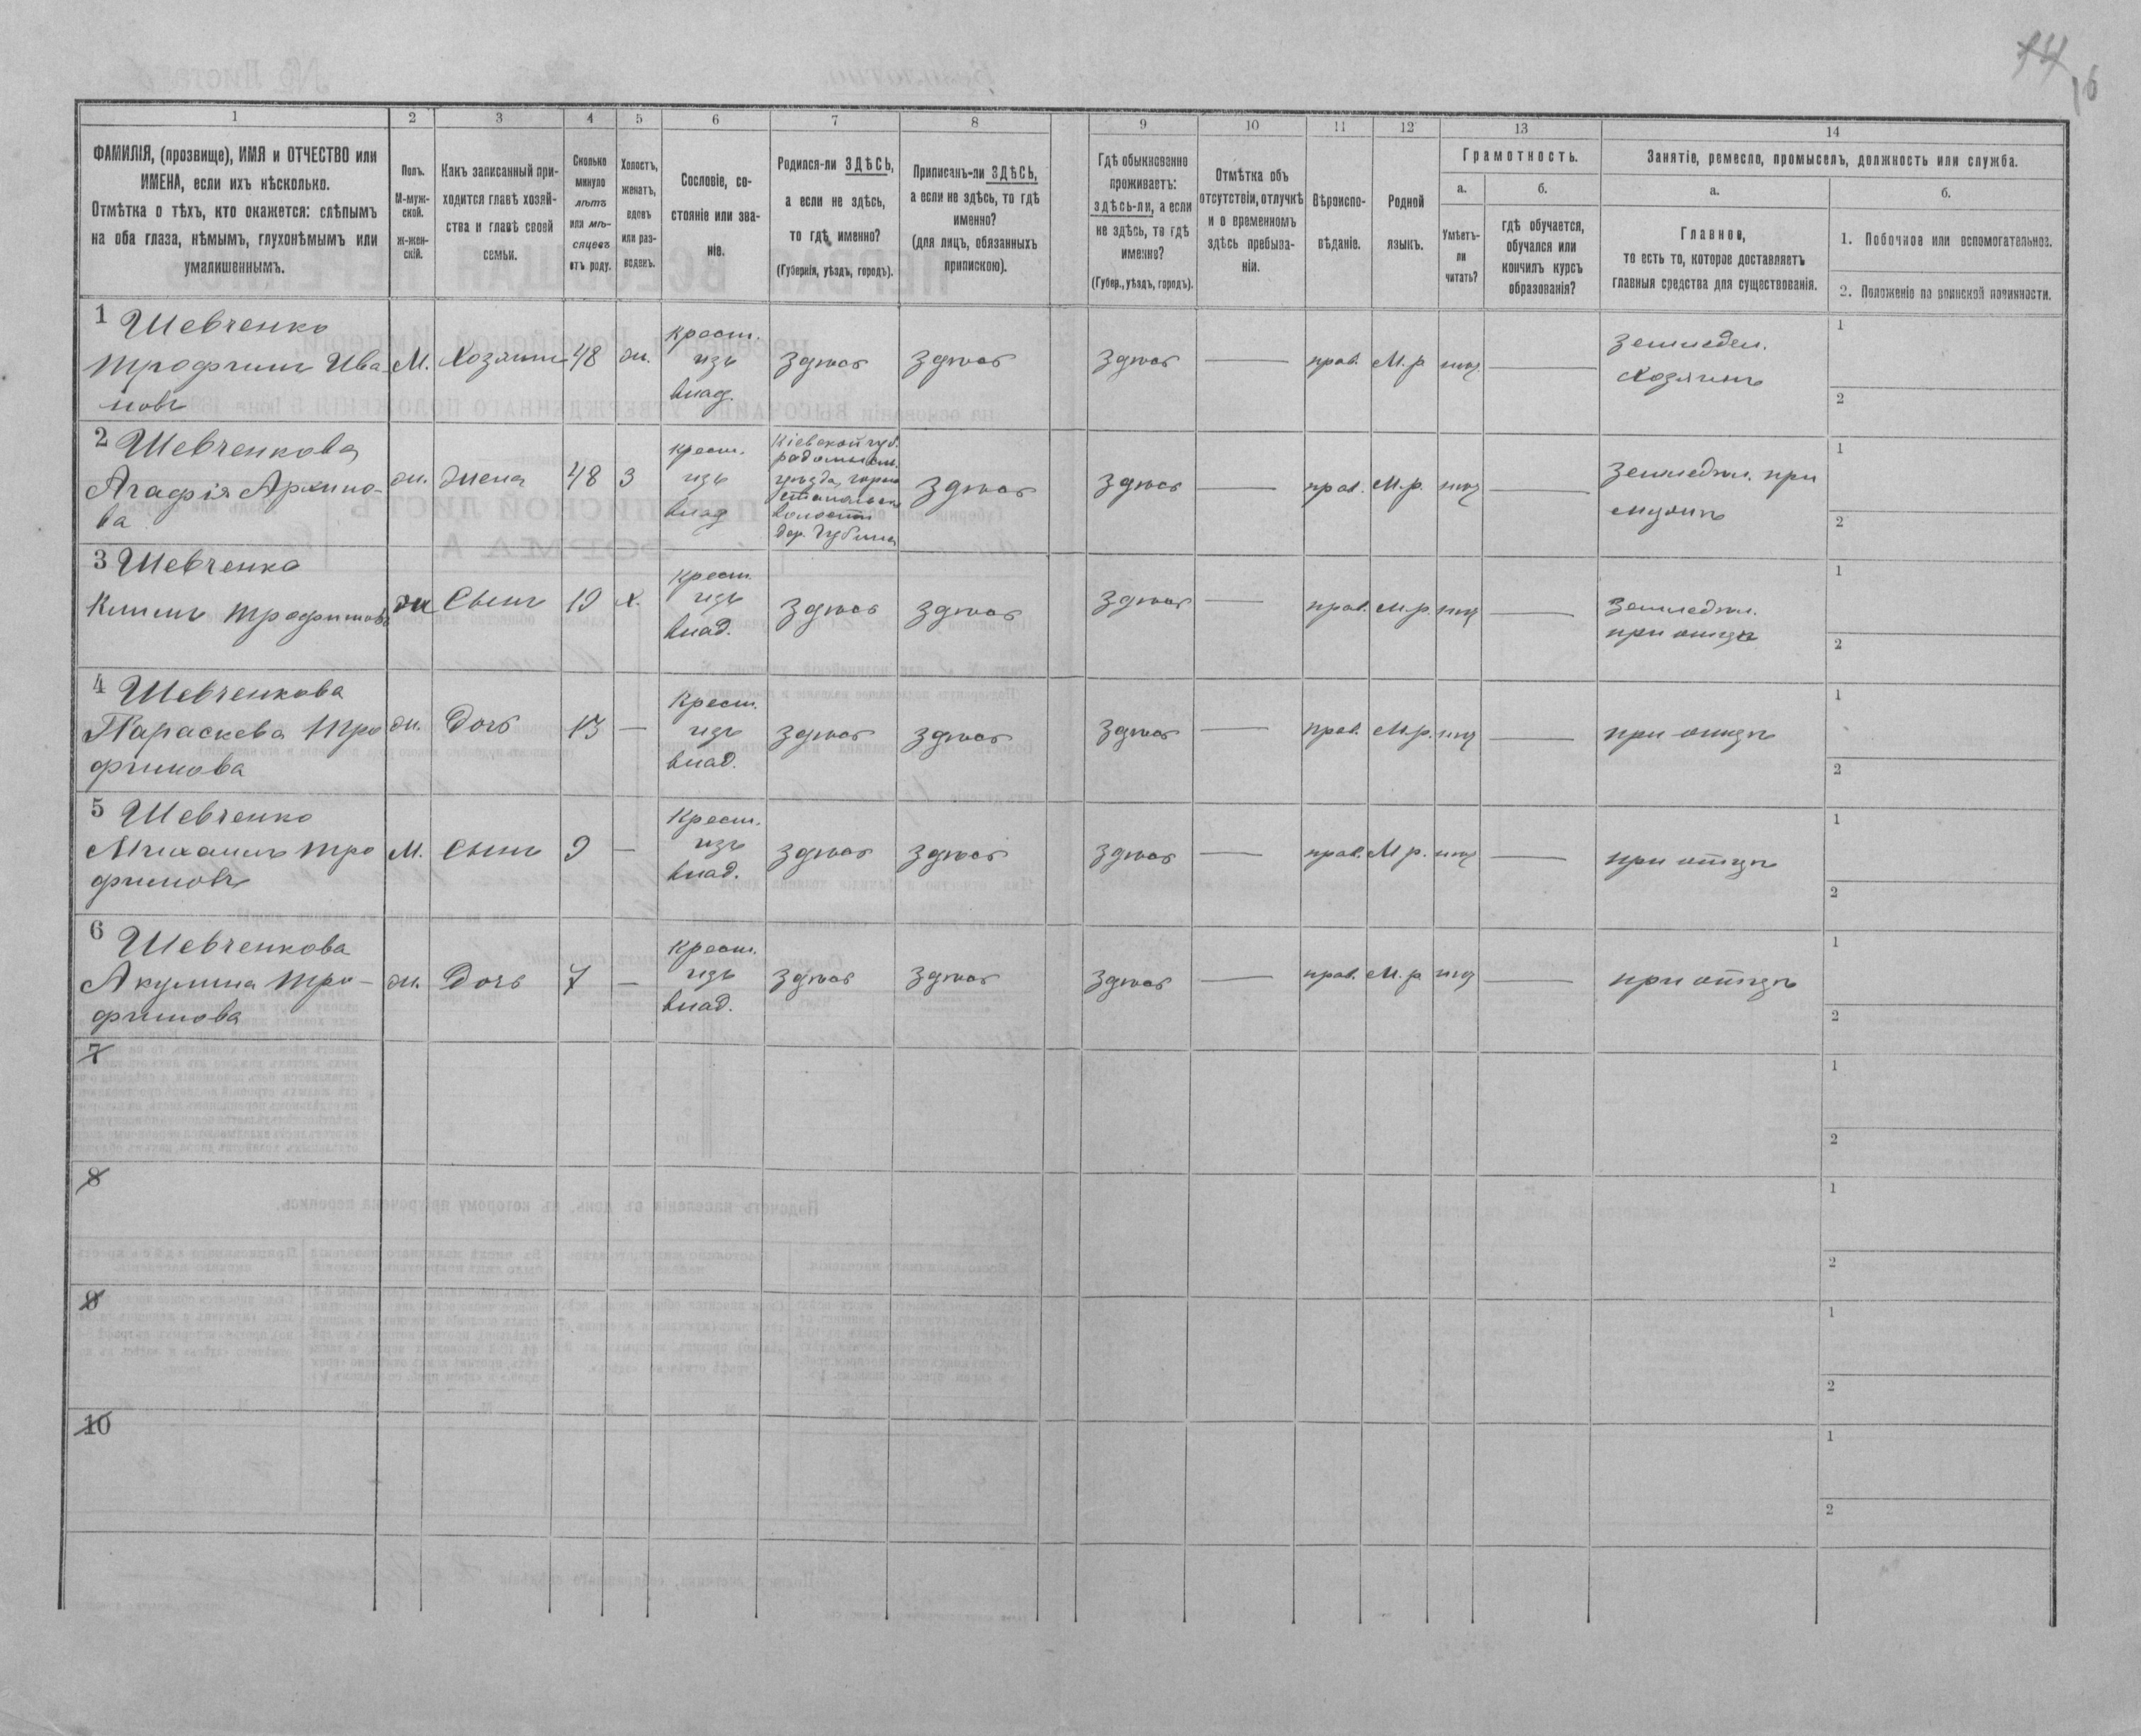 14
16
1
2
3
4
5
6
7
8
9
10
11
12
13
14
ФАМИЛІЯ, (прозвище), ИМЯ и ОТЧЕСТВО или
ИМЕНА, если ихъ нѣсколько.
Отмѣтка о тѣхъ, кто окажется: слѣпымъ
на оба глаза, нѣмымъ, глухонѣмымъ или
умалишеннымъ.
Полъ.
М-муж-
ской.
ж-жен-
скій.
Какъ записанный при-
ходится главѣ хозяй-
ства и главѣ своей
семьи.
Сколько
минуло
лѣтъ
или мѣ-
сяцевъ
отъ роду.
Холостъ,
женатъ,
вдовъ
или раз-
веденъ.
Сословіе, со-
стояніе или зва-
ніе.
Родился-ли ЗДѢСЬ,
а если не здѣсь,
то гдѣ именно?
(Губернія, уѣздъ, городъ).
Приписанъ-ли ЗДѢСЬ,
а если не здѣсь, то гдѣ
именно?
(для лицъ, обязанныхъ
припискою).
Гдѣ обыкновенно
проживаетъ:
здѣсь-ли, а если
не здѣсь, то гдѣ
именно?
(Губер., уѣздъ, городъ).
Отмѣтка объ
отсутствіи, отлучкѣ
и о временномъ
здѣсь пребыва-
ніи.
Вѣроиспо-
вѣданіе.
Родной
языкъ.
Грамотность.
а.
Умѣетъ-
ли
читать?
б.
гдѣ обучается,
обучался или
кончилъ курсъ
образованія?
Занятіе, ремесло, промыселъ, должность или служба.
а.
Главное,
то есть то, которое доставляетъ
главныя средства для существованія.
б.
1. Побочное или вспомогательное.
2. Положеніе по воинской повинности.
1 Шевченко
Трофимъ Ива
новъ
М.
Хозяинъ
48
ж.
Крест.
изъ
влад.
здѣсь
здѣсь
здѣсь
—
прав.
М.р
нѣт
—
земледел.
хозяинъ
1
2
2 Шевченкова
Агафія Архипо-
ва
ж.
жена
48
З
крест.
изъ
влад
Кіевской губ.
радомысл.
уѣзда, горно
стайпольск
волости
дер. Губина
здѣсь
здѣсь
—
прав.
М.р.
нѣт
—
земледѣл. при
мужѣ
1
2
3 Шевченко
Климъ Трофимовъ
Сынъ
19
х.
крест.
изъ
влад.
здѣсь
здѣсь
здѣсь
—
прав.
М.р.
нѣт
—
земледѣл.
при отцѣ
1
2
4 Шевченкова
Параскева Тро
фимова
ж.
Дочь
13
—
Крест.
изъ
влад.
здѣсь
здѣсь
здѣсь
—
прав.
М.р.
нѣт
—
при отцѣ
1
2
5 Шевченко
Михаилъ Тро
фимовъ
М.
Сынъ
9
—
Крест.
изъ
влад.
здѣсь
здѣсь
здѣсь
—
прав.
М р.
нѣт
—
при отцѣ
1
2
6 Шевченкова
Акулина Тро-
фимова
ж.
Дочь
7
—
Крест.
изъ
влад.
здѣсь
здѣсь
здѣсь
—
прав.
М.р
нѣт
—
при отцѣ
1
2
7
1
2
8
1
2
9
1
2
10
1
2